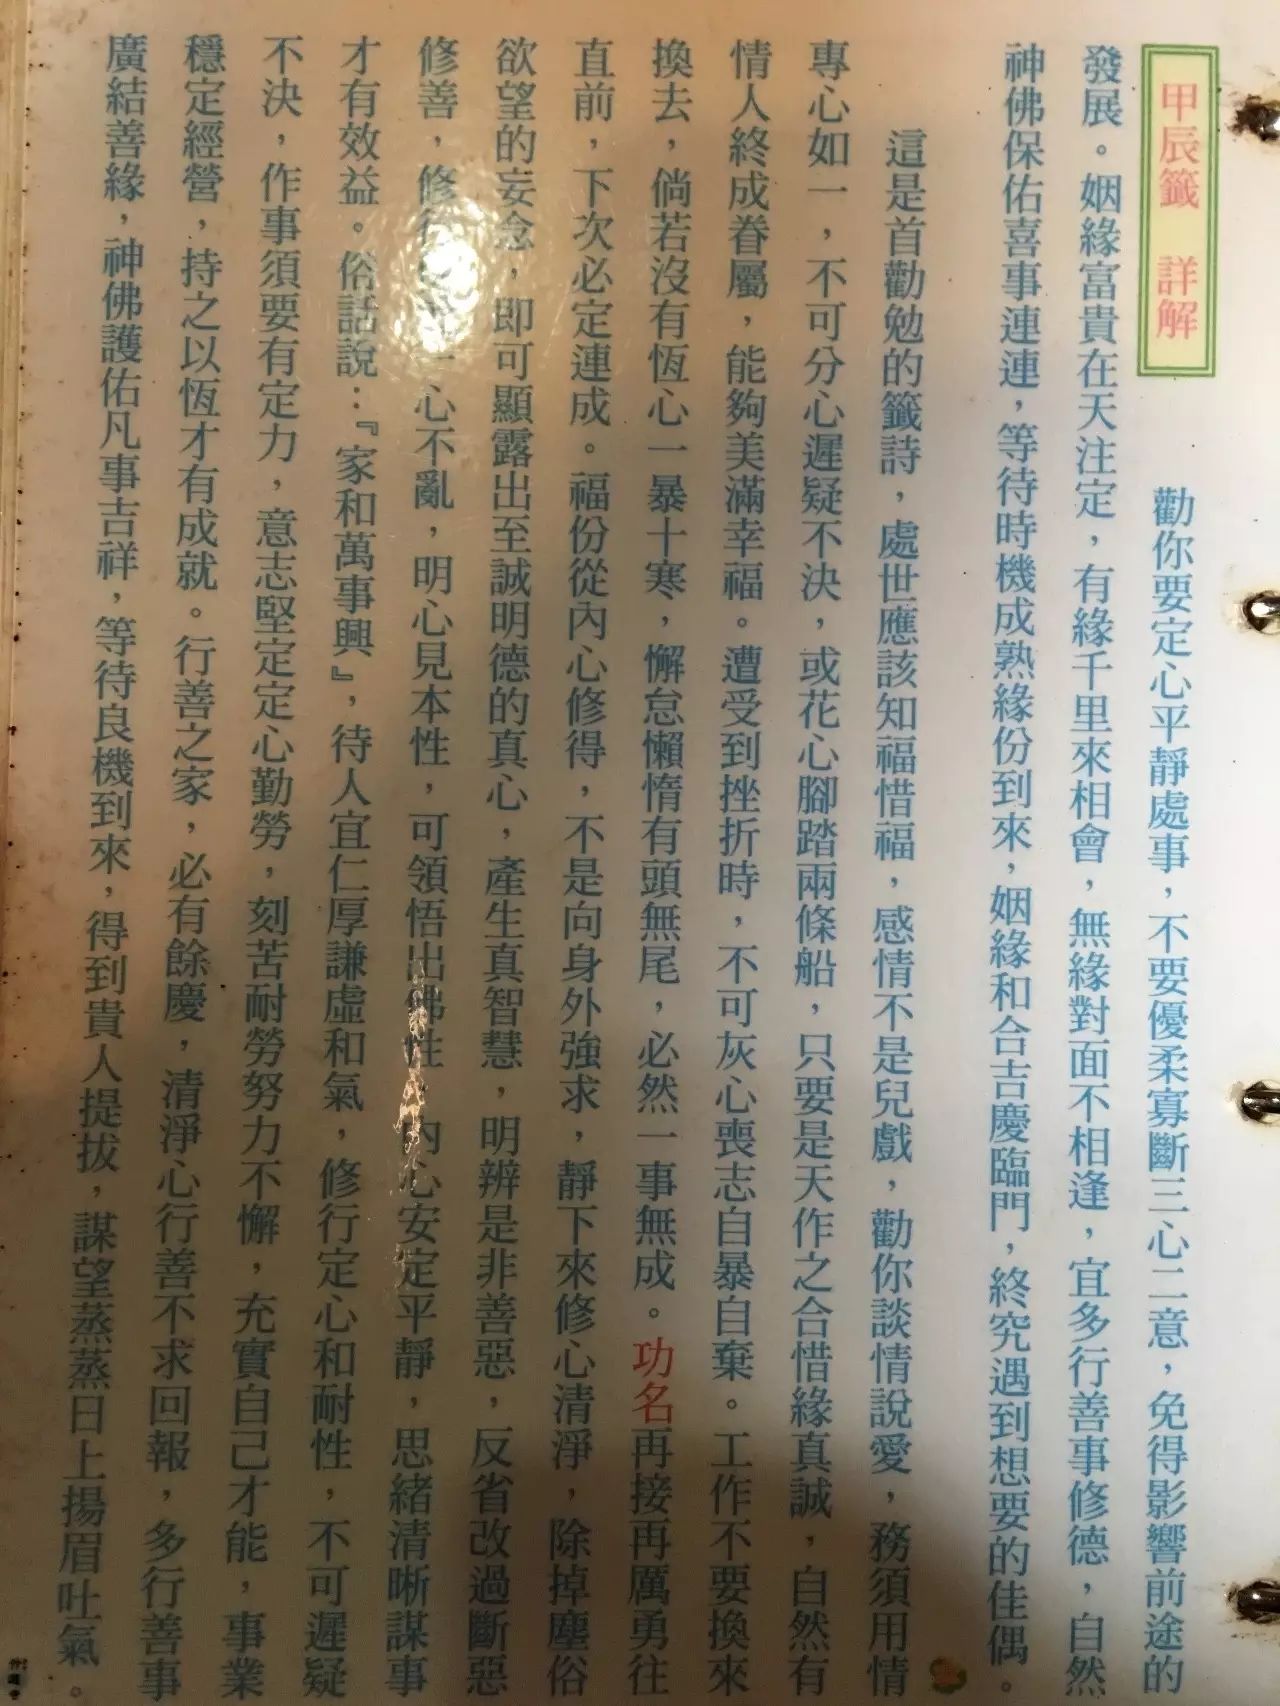 甲辰籤 詳解
勸你要定心平靜處事，不要優柔寡斷三心二意，免得影響前途的
發展。姻緣富貴在天注定，有緣千里來相會，無緣對面不相逢，宜多行善事修德，自然
神佛保佑喜事連連，等待時機成熟緣份到來，姻緣和合吉慶臨門，終究遇到想要的佳偶。
這是首勸勉的籤詩，處世應該知福惜福，感情不是兒戲，勸你談情說愛，務須用情
專心如一，不可分心遲疑不決，或花心腳踏兩條船，只要是天作之合惜緣真誠，自然有
情人終成眷屬，能夠美滿幸福。遭受到挫折時，不可灰心喪志自暴自棄。工作不要換來
換去，倘若沒有恆心一暴十寒，懈怠懶惰有頭無尾，必然一事無成。功名再接再厲勇往
直前，下次必定連成。福份從內心修得，不是向身外強求，靜下來修心清淨，除掉塵俗
欲望的妄念，即可顯露出至誠明德的真心，產生真智慧，明辨是非善惡，反省改過斷惡
修善，修行心不亂，明心見本性，可領悟出佛性，內心安定平靜，思緒清晰謀事
才有效益。俗話說：『家和萬事興』，待人宜仁厚謙虛和氣，修行定心和耐性，不可遲疑
不決，作事須要有定力，意志堅定定心勤勞，刻苦耐勞努力不懈，充實自己才能，事業
穩定經營，持之以恆才有成就。行善之家，必有餘慶，清淨心行善不求回報，多行善事
廣結善緣，神佛護佑凡事吉祥，等待良機到來，得到貴人提拔，謀望蒸蒸日上揚眉吐氣。